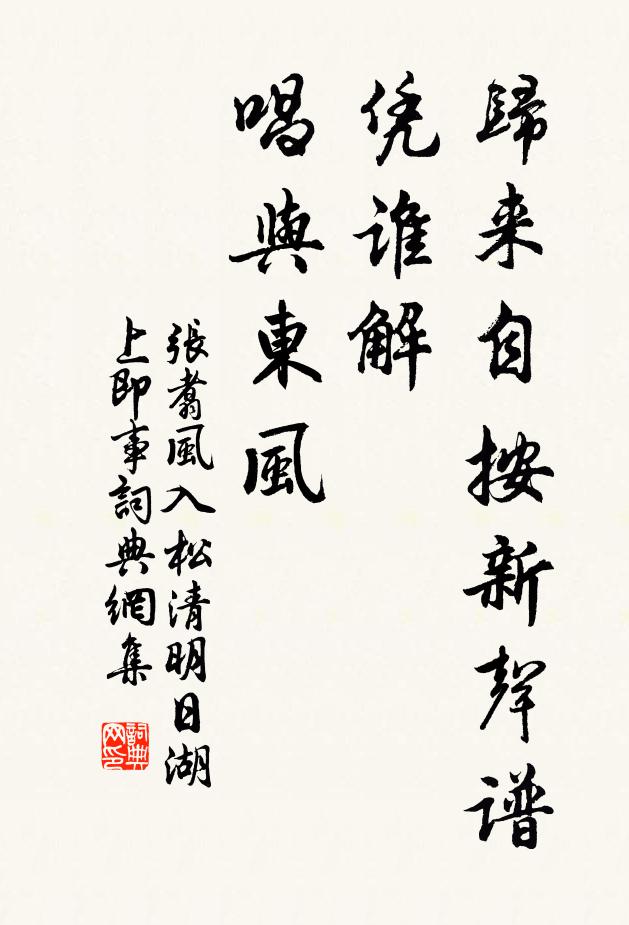 歸来自按新聲譜
凭谁解
唱與東風
張翥風入松清明日湖
上即事詞典網集
詞典
网印